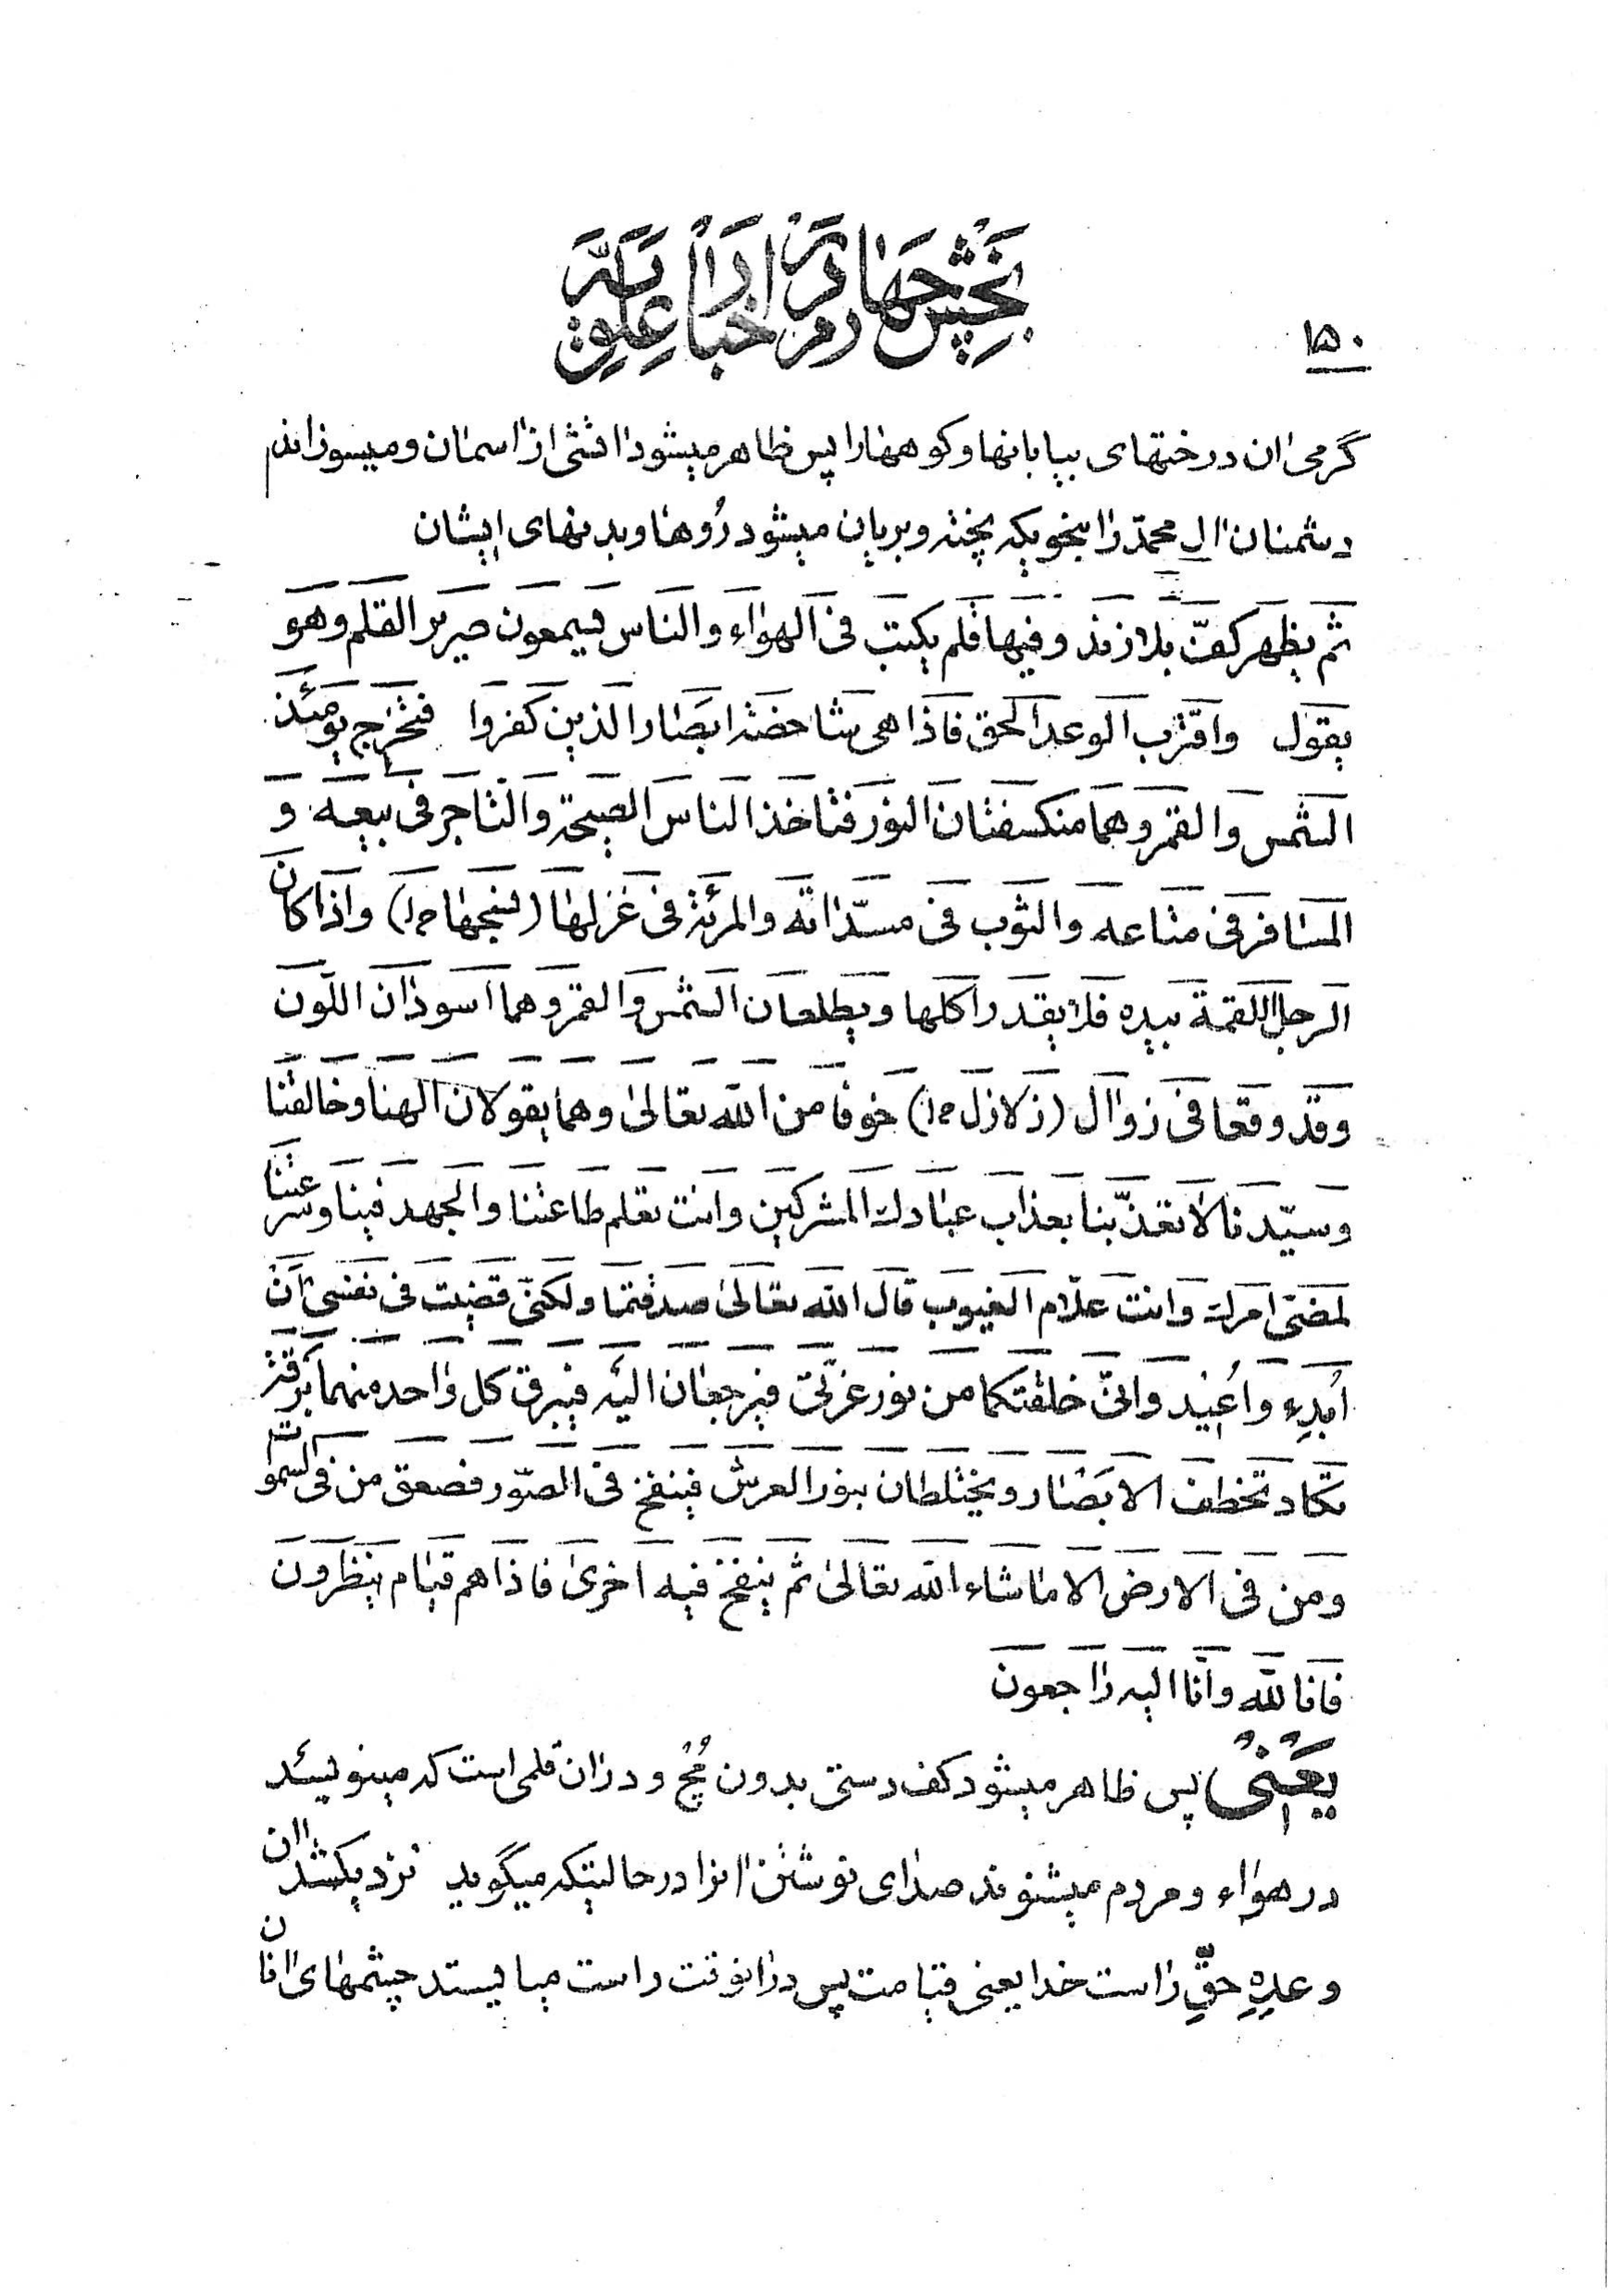 بخش چهارم در اخبار علویه
۱۵۰
گرمی ان درختهای بیابانها و کوهها را پس ظاهر میشود اتشی از اسمان و میسوزاند
دشمنان ال محمد را بنحویکه پخته و بریان میشود رُوها و بدنهای ایشان
ثم یظهر کفّ بلا زند و فیها قلم یکتب فی الهواء و الناس یسمعون صریر القلم و هو
یقول واقترب الوعد الحق فاذا هی شاخصة ابصار الذین کفروا فتخرج یومئذ
الشمس و القمر و هما منکسفتان النور فتاخذ الناس الصیحة و التاجر فی بیعه و
المسافر فی متاعه و الثوب فی مسدّاته و المرئة فی غزلها (نسجها خ ل) و اذا کان
الرجل اللقمة بیده فلا یقدر اکلها و یطلعان الشمس و القمر و هما اسودان اللون
و قد وقعا فی زوال (زلازل خ ل) خوفا من الله تعالی و هما یقولان الهنا و خالقنا
و سیّدنا لا تعذّبنا بعذاب عبادك المشرکین و انت تعلم طاعتنا و الجهد فینا و سرعتنا
لمضیّ امرك و انت علّام الغیوب قال الله تعالی صدقتما و لکنّی قضیت فی نفسی ان
اُبدِء و اُعید و انّی خلقتکما من نور عزّتی فیرجعان الیه فیبرق کل واحده منهما برقة
تکاد تخطف الابصار و یختلطان بنور العرش فینفخ فی الصّور فصعق من فی السموات
و من فی الارض الا ماشاء الله تعالی ثم ینفخ فیه اخری فاذا هم قیام ینظرون
فانا لله و انا الیه راجعون
یعنی پس ظاهر میشود کف دستی بدون مُچ و در ان قلمی است که مینویسد
در هواء و مردم میشنوند صدای نوشتن انرا در حالتیکه میگوید نزدیکشد ان
وعدهِ حقِّ راست خدا یعنی قیامت پس در انوقت راست میایستد چشمهای انان